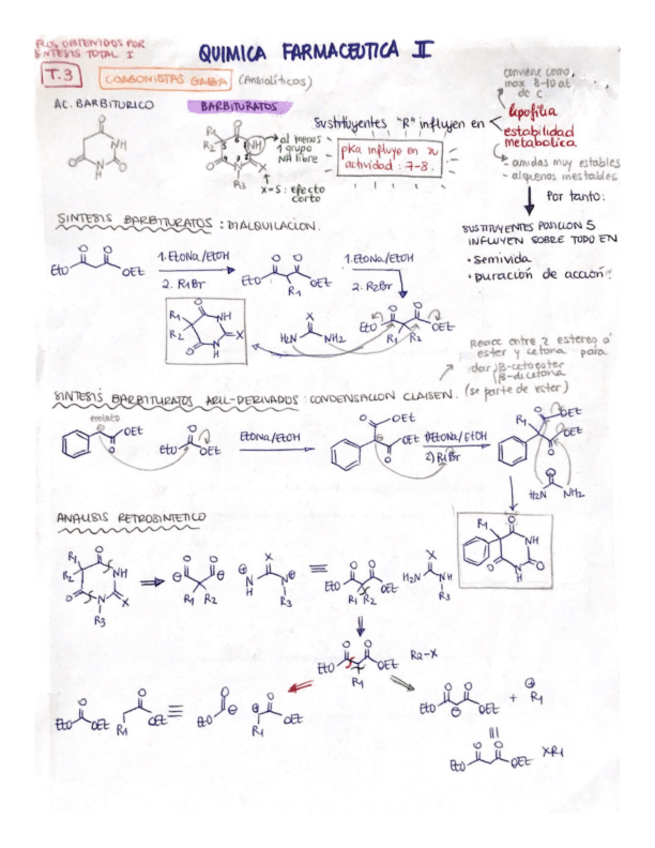 FLOS OBTENIDOS POR
SINTESIS TOTAL I
QUIMICA FARMACEUTICA II
T.3
COAGONISTAS GABBA (Ansiolíticos)
AC. BARBITURICO
BARBITURATOS
Sustituyentes "R" influyen en
conviene como
max 8-10 at
de C
lipofilia
estabilidad
metabolica
- amidas muy estables
- alquenos inestables
pka influye en su
actividad : 7-8.
al menos
1 grupo
NH libre
X=S : efecto
corto
O
NH
O N O
H
R1 O
R2 NH
O N X
R3
6 5 4 3 2 1
Por tanto:
SUSTITUYENTES POSICION 5
INFLUYEN SOBRE TODO EN
• semivida
• Duración de acción.
SINTESIS BARBITURATOS : DIALQUILACION.
O O
EtO OEt
1. EtONa/EtOH
2. R1Br
O O
EtO OEt
R1
1. EtONa/EtOH
2. R2Br
R1 O
R2 NH
O N X
H
X
H2N NH2
O O
EtO OEt
R1 R2
Reacc entre 2 esteres o
ester y cetona para
dar β-cetoester
β-dicetona
(se parte de ester)
SINTESIS BARBITURATOS ARIL-DERIVADOS : CONDENSACION CLAISEN.
enolato
OEt
O
O
EtO OEt
O
EtONa/EtOH
O OEt
OEt
O
1)EtONa/EtOH
2) R1Br
R1 O OEt
OEt
O
O
H2N NH2
R1 O
NH
O N O
H
ANALISIS RETROSINTETICO
R1 O
R2 NH
O N X
R3
O O
R1 R2
X
N N
H R3
O O
EtO OEt
R1 R2
X
H2N NH
R3
O O
EtO OEt
R1
R2-X
O O
EtO OEt R1 OEt
O O
EtO R1 OEt
O O
EtO OEt
+ R1
O O
EtO OEt
XR1